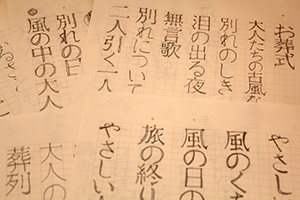 お葬式
大人たちの古風な
別れのしき
泪の出る夜
無言歌
別れについて
二人引く一人
別れの日
風の中の大人
やさしい
風のくち
風の日の
旅の終り
やさしい
大人の
葬列